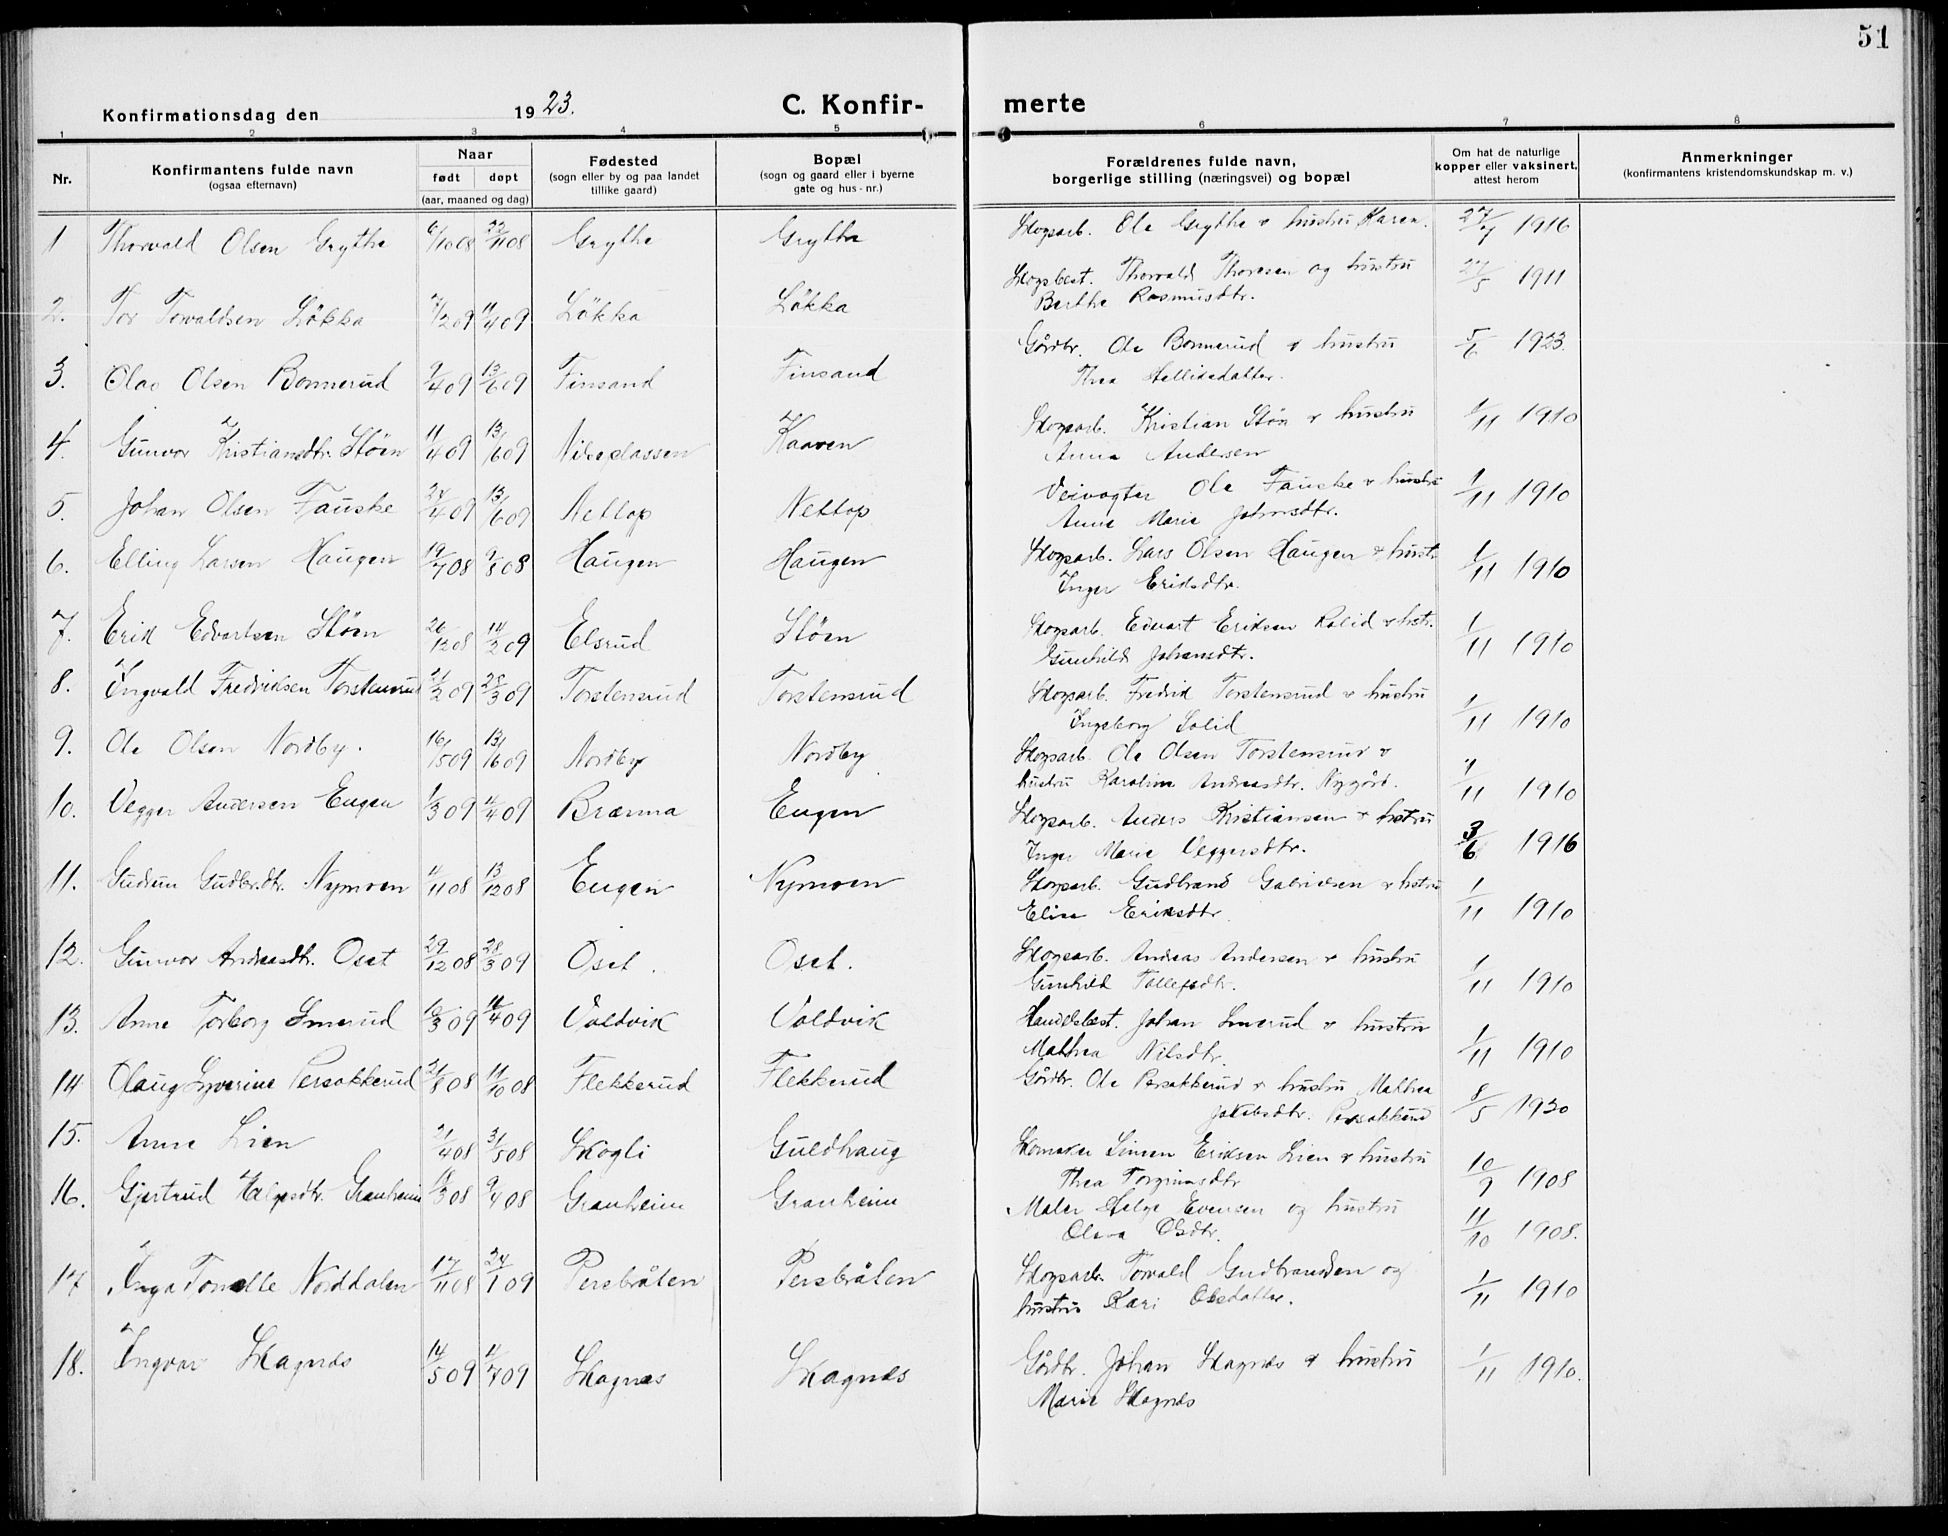 51
Konfirmationsdag den 1923.
C. Konfirmerte
1 2 3 4 5 6 7 8
Nr.
Konfirmantens fulde navn
(ogsaa efternavn)
Naar
født døpt
(aar, maaned og dag)
Fødested
(sogn eller by og paa landet
tillike gaard)
Bopæl
(sogn og gaard eller i byerne
gate og hus - nr.)
Forældrenes fulde navn,
borgerlige stilling (næringsvei) og bopæl
Om hat de naturlige
kopper eller vaksinert,
attest herom
Anmerkninger
(konfirmantens kristendomskundskap m. v.)
1 Thorvald Olsen Grythe 6/10 08 22/11 08 Grythe Grythe Skogsarb. Ole Grythe & hustru Karen. 1916
2. Tor Torvaldsen Løkka 7/2 09 11/4 09 Løkka Løkka Skogsbest. Thorvald Thoresen og hustru 27/5 1911
Berthe Rasmusdtr.
3. Olav Olsen Bonnerud 9/4 09 13/6 09 Finsand Finsand Gårdbr. Ole Bonnerud & hustru 5/6 1923.
Thea Helliksdatter.
4. Gunvor Kristiansdtr. Støen 11/4 09 13/6 09 Nilseplassen Kaaven Skogsarb. Kristian Støn & hustru 1/11 1910
Anna Andersen
5. Johan Olsen Fauske 24/4 09 13/6 09 Nettop Nettop Veivogter Ole Fauske & hustru 1/11 1910
Anne Marie Johansdtr.
6. Elling Larsen Haugen 19/7 08 9/8 08 Haugen Haugen Skogsarb. Lars Olsen Haugen & hustr. 1/11 1910
Inger Eriksdtr.
7. Erik Edvartsen Støen 26/12 08 14/2 09 Elsrud Støen Skogsarb. Edvart Eriksen Kolid & hstr. 1/11 1910
Gunhild Johansdtr.
8. Ingvald Fredriksen Torstensrud 21/2 09 28/3 09 Torstensrud Torstensrud Skogsarb. Fredrik Torstensrud & hustru 1/11 1910
Ingeborg Solid
9. Ole Olsen Nordby. 16/5 09 13/6 09 Nordby Nordby Skogsarb. Ole Olsen Torstensrud &
hustru Karoline Andreasdtr. Nygård. 1/11 1910
10. Vegger Andersen Engen 1/3 09 11/4 09 Brænna Engen Skogsarb. Anders Kristiansen & hstru
Inger Marie Veggersdtr. 3/6 1916
11. Gudrun Gudbr.dtr. Nymoen 11/11 08 13/12 08 Engen Nymoen Skogsarb. Gudbrand Gabrielsen & hstru
Elise Eriksdtr. 1/11 1910
12. Gunvor Andreasdtr. Oset 29/12 08 28/3 09 Oset. Oset. Skogsarb. Andreas Andersen & hustru
Gunhild Tollefsdtr. 1/11 1910
13. Anne Torborg Smerud 10/3 09 11/4 09 Voldvik Voldvik Handelsbest. Johan Smerud & hustru
Mathea Nilsdtr. 1/11 1910
14 Olaug Syverine Persokkerud 21/8 08 11/10 08 Flekkerud Flekkerud Gårdbr. Ole Persokkerud & hustru Mathea
Jakobsdtr. Persokkerud 8/5 1920
15. Anne Lien 21/4 08 31/5 08 Skogli Guldhaug Skomaker Simen Eriksen Lien & hustru
Thea Torgrimsdtr 10/9 1908
16. Gjertrud Helgesdtr. Granheim 18/3 08 9/4 08 Granheim Granheim Maler Helge Evensen og hustru
Oleva Olsdtr. 11/10 1908.
17 Inga Tomelle Norddalen 17/11 08 24/1 09 Persbråten Persbråten Skogsarb. Torvald Gudbrandsen og
hustru Kari Olsdatter. 1/11 1910
18. Ingvar Skagnæs 14/5 09 11/7 09 Skagnæs Skagnæs Gårdbr. Johan Skagnæs & hustru 1/11 1910.
Marie Skagnæs